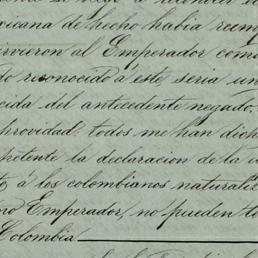 xicana de hecho habia reem
irvieron al Emperador com
do reconocido á este seria un
cida del antecedente negado.
providad: todos me han dich
petente la declaracion de la
á los colombianos naturaliz
no Emperador, no pueden
Colombia.